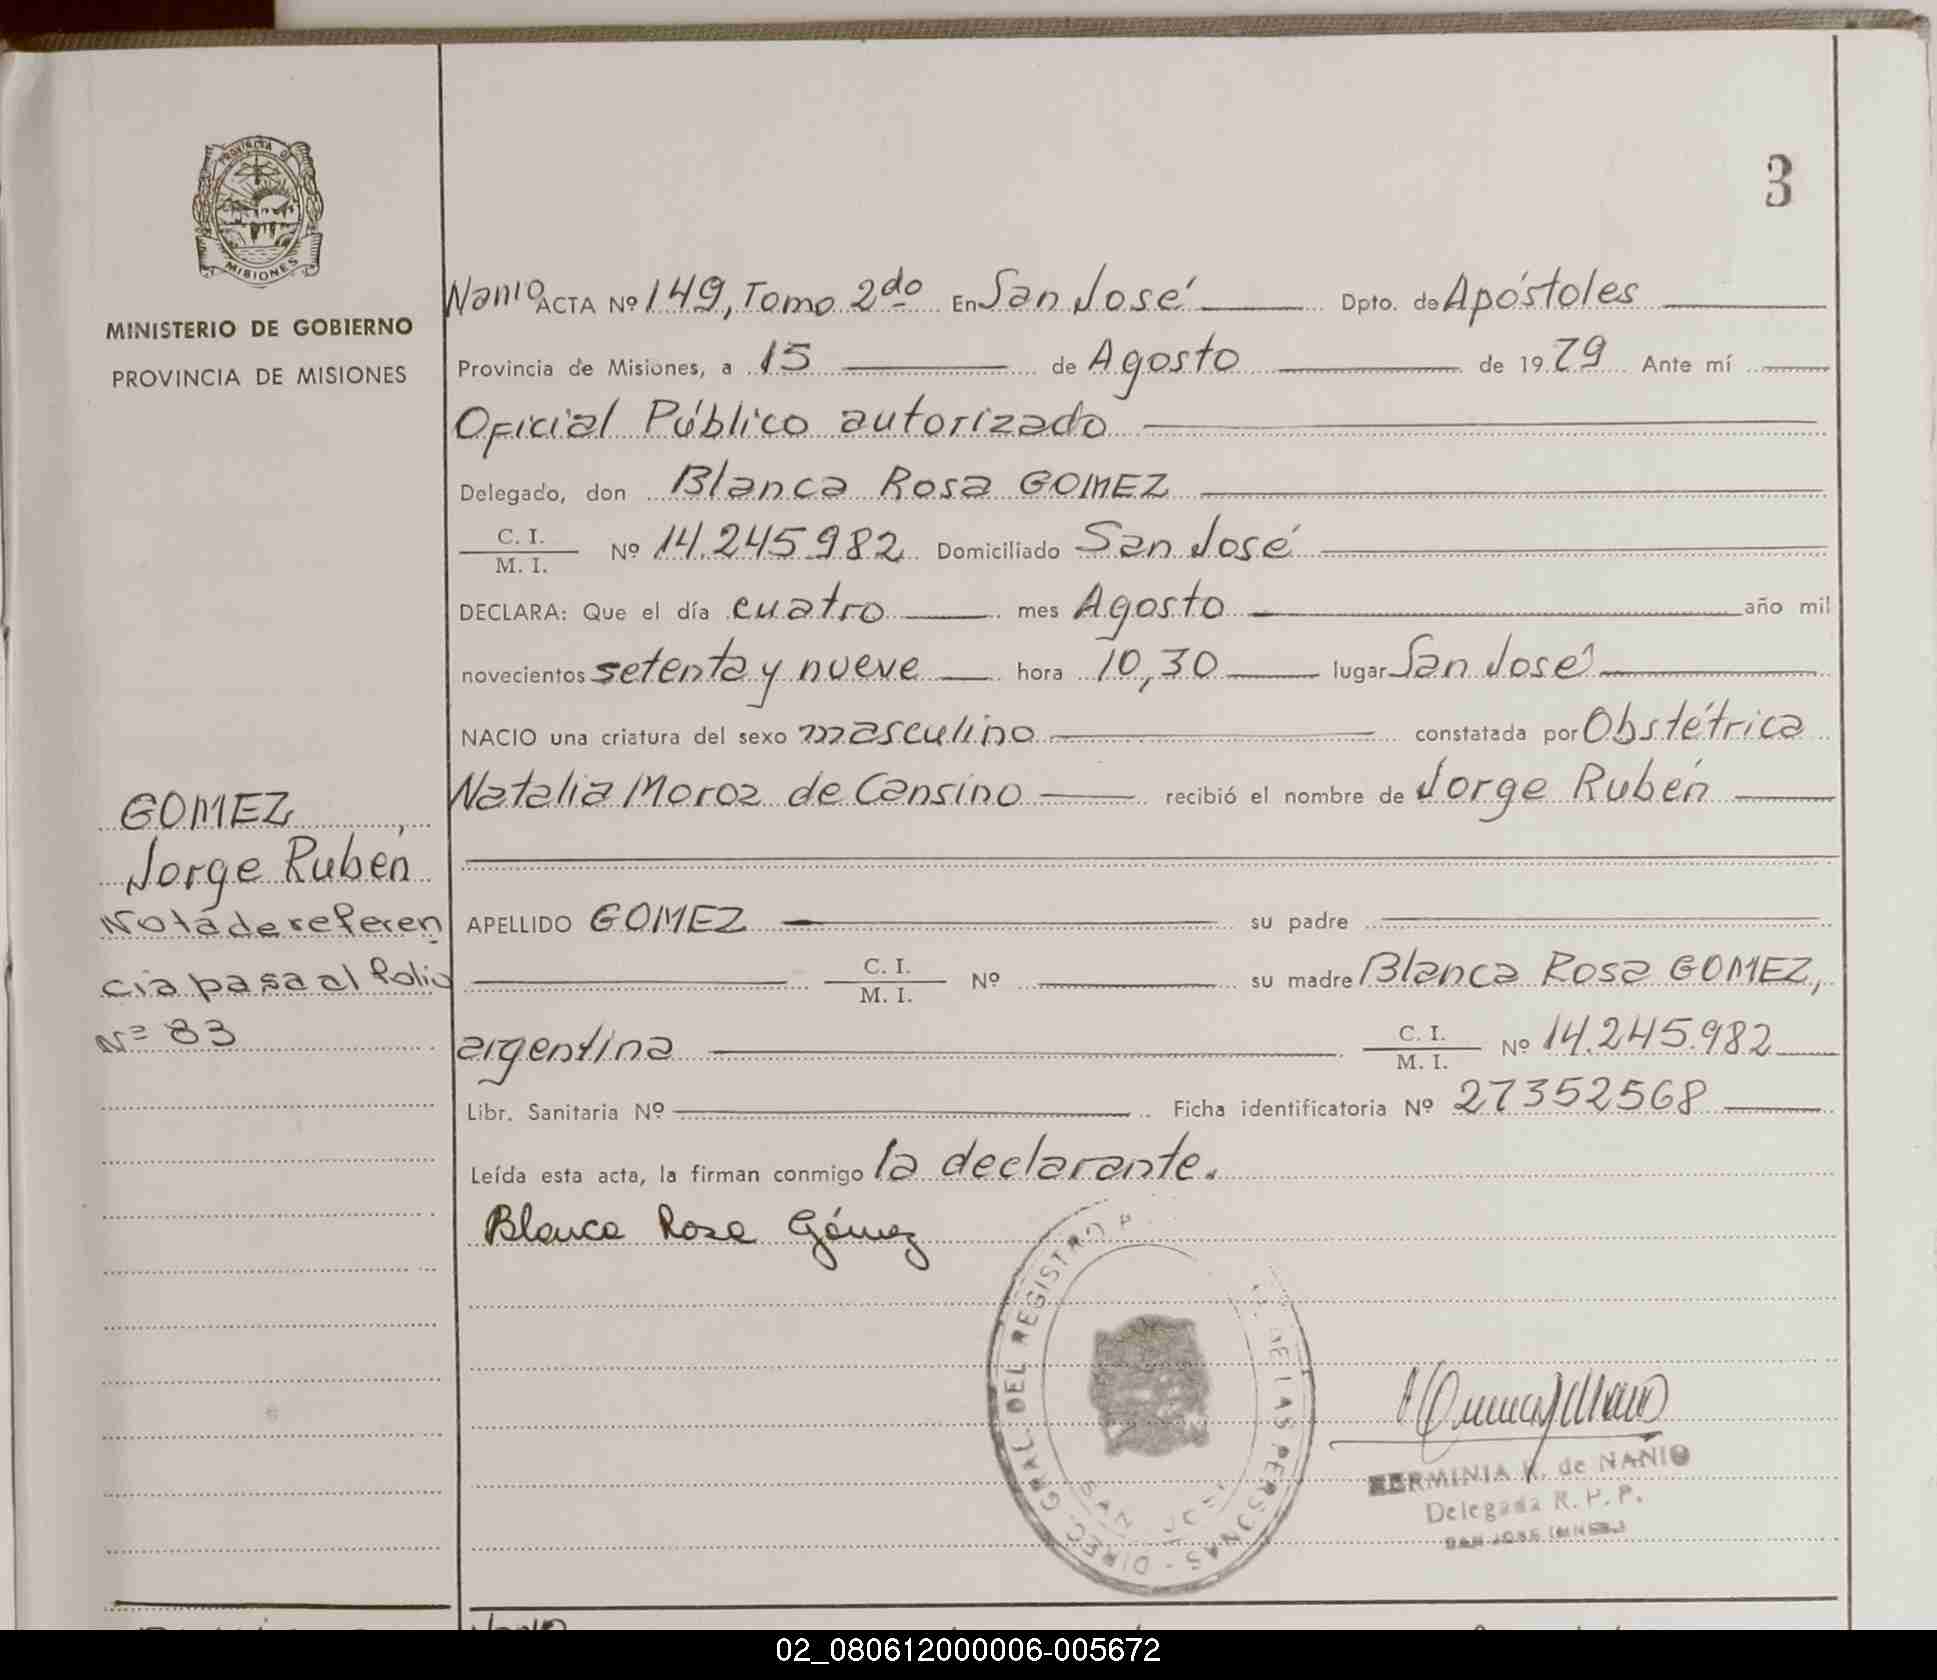 PROVINCIA DE
MISIONES
MINISTERIO DE GOBIERNO
PROVINCIA DE MISIONES
GOMEZ,
Jorge Ruben
Nota de referen
cia pasa al folio
Nº 83
3
Nanio ACTA Nº 149, Tomo 2do En San José Dpto. de Apóstoles
Provincia de Misiones, a 15 de Agosto de 1979 Ante mí
Oficial Público autorizado
Delegado, don Blanca Rosa GOMEZ
C. I.
M. I. Nº 14.245.982 Domiciliado San José
DECLARA: Que el día cuatro mes Agosto año mil
novecientos setenta y nueve hora 10,30 lugar San José
NACIO una criatura del sexo masculino constatada por Obstétrica
Natalia Moroz de Cansino recibió el nombre de Jorge Rubén
APELLIDO GOMEZ su padre
C. I.
M. I. Nº su madre Blanca Rosa GOMEZ,
argentina C. I.
M. I. Nº 14.245.982
Libr. Sanitaria Nº Ficha identificatoria Nº 27352568
Leída esta acta, la firman conmigo la declarante.
Blanca Rosa Gómez
DIREC. GRAL. DEL REGISTRO P DE LAS PERSONAS -
SAN JOSE
HERMINIA K. de NANIO
Delegada R. P. P.
SAN JOSE (MNES.)
02_080612000006-005672